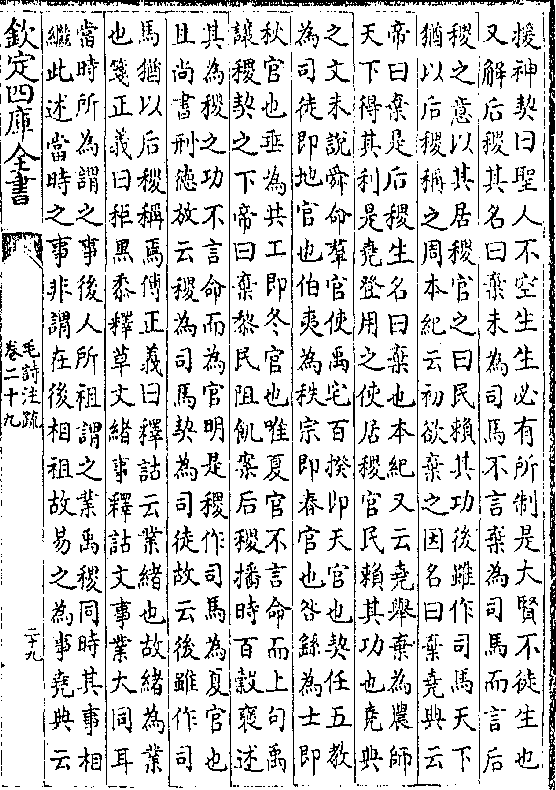 援神契曰聖人不空生生必有所制是大賢不徒生也
又解后稷其名曰棄未為司馬不言棄為司馬而言后
稷之意以其居稷官之曰民賴其功後雖作司馬天下
猶以后稷稱之周本紀云初欲棄之因名曰棄堯典云
帝曰棄是后稷生名曰棄也本紀又云堯舉棄為農師
天下得其利是堯登用之使居稷官民賴其功也堯典
之文未說舜命羣官使禹宅百揆即天官也契任五教
為司徒即地官也伯夷為秩宗即春官也咎繇為士即
秋官也垂為共工即冬官也唯夏官不言命而上句禹
讓稷契之下帝曰棄黎民阻飢棄后稷播時百穀褒述
其為稷之功不言命而為官明是稷作司馬為夏官也
且尚書刑德放云稷為司馬契為司徒故云後雖作司
馬猶以后稷稱焉傳正義曰釋詁云業緒也故緒為業
也箋正義曰秬黒黍釋草文緒事釋詁文事業大同耳
當時所為謂之事後人所祖謂之業禹稷同時其事相
繼此述當時之事非謂在後相祖故易之為事堯典云
欽定四庫全書
毛詩注疏
卷二十九
二十九